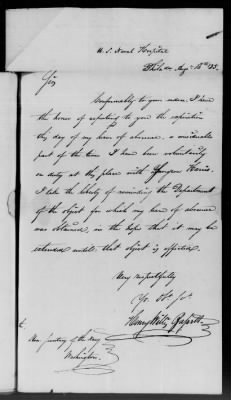 U. S. Naval Hospital
Philada. Augt 15th 35.
Sir
Conformably to your orders, I have
the honor of reporting to you the expiration
this day of my leave of absence, a considerable
part of the time I have been voluntarily
on duty at this place with Surgeon Harris.
I take the liberty of reminding the Department
of the object for which my leave of absence
was obtained, in the hope that it may be
extended until that object is effected.
Very respectfully
Yr. Obt. St.
Henry
Hon. Secretary of the Navy
Washington